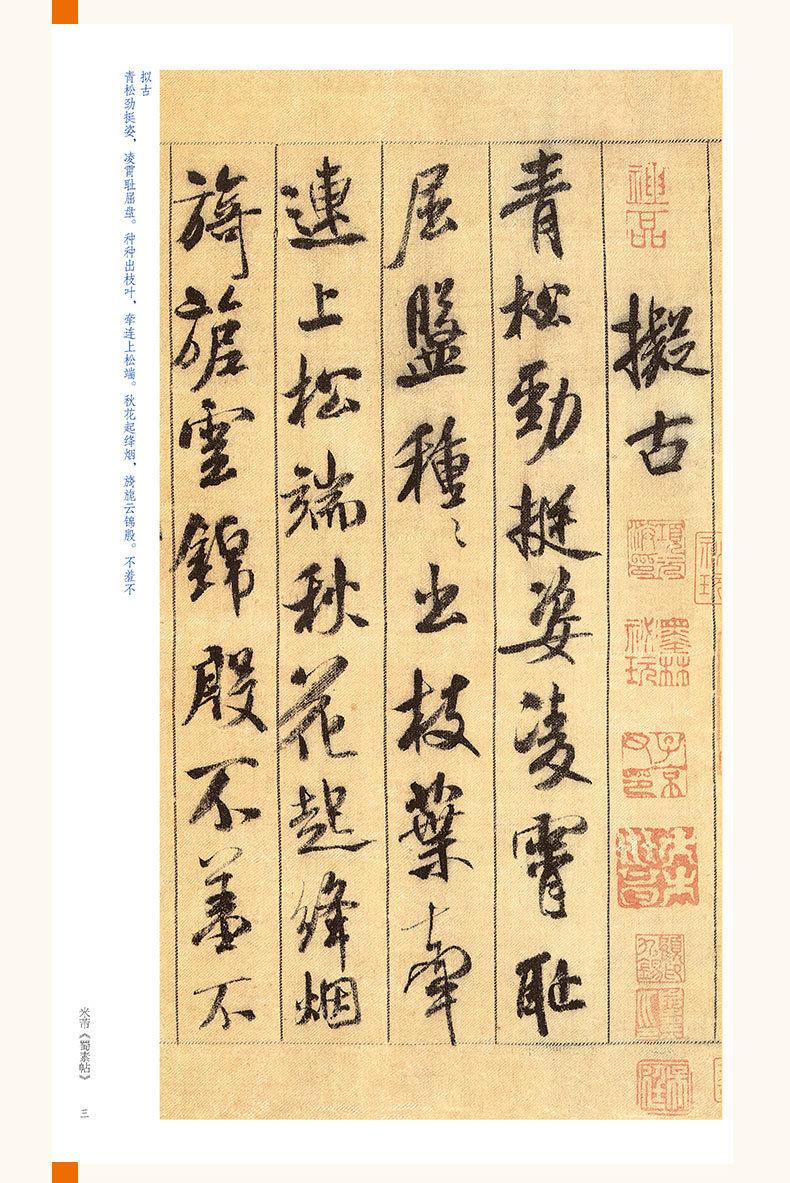 神品
擬古
項元汴印
墨林祕玩
子京父印
青松勁挺姿凌霄耻
屈盤種〻出枝葉牽
連上松端秋花起絳烟
旖旎雲錦殷不羞不
拟古
青松劲挺姿，凌霄耻屈盘。种种出枝叶，牵连上松端。秋花起绛烟，旖旎云锦殷。不羞不
米芾《蜀素帖》
三